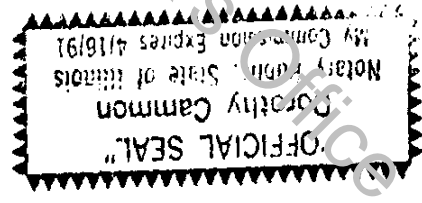 "OFFICIAL SEAL"
Dorothy Cammon
Notary Public, State of Illinois
My Commission Expires 4/16/91
s Office